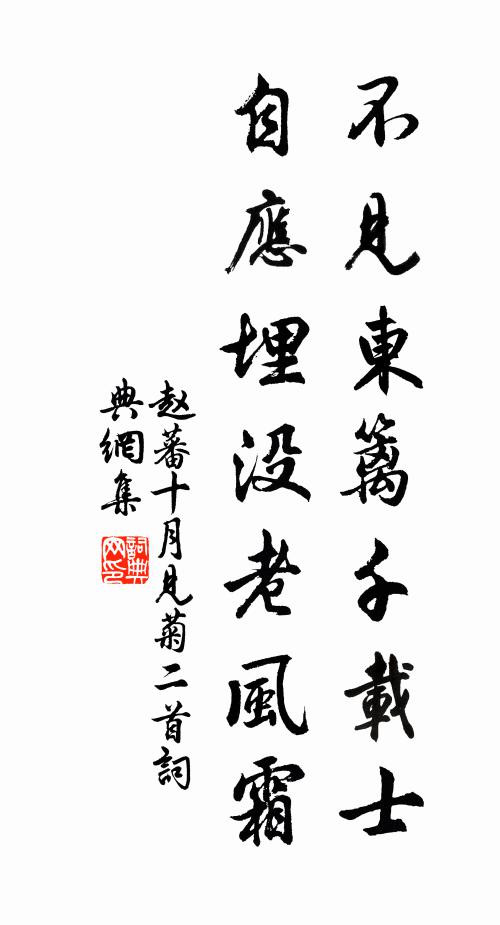 不見東籬千載士
自應埋没老風霜
赵蕃十月見菊二首詞
典網集
詞典
网印